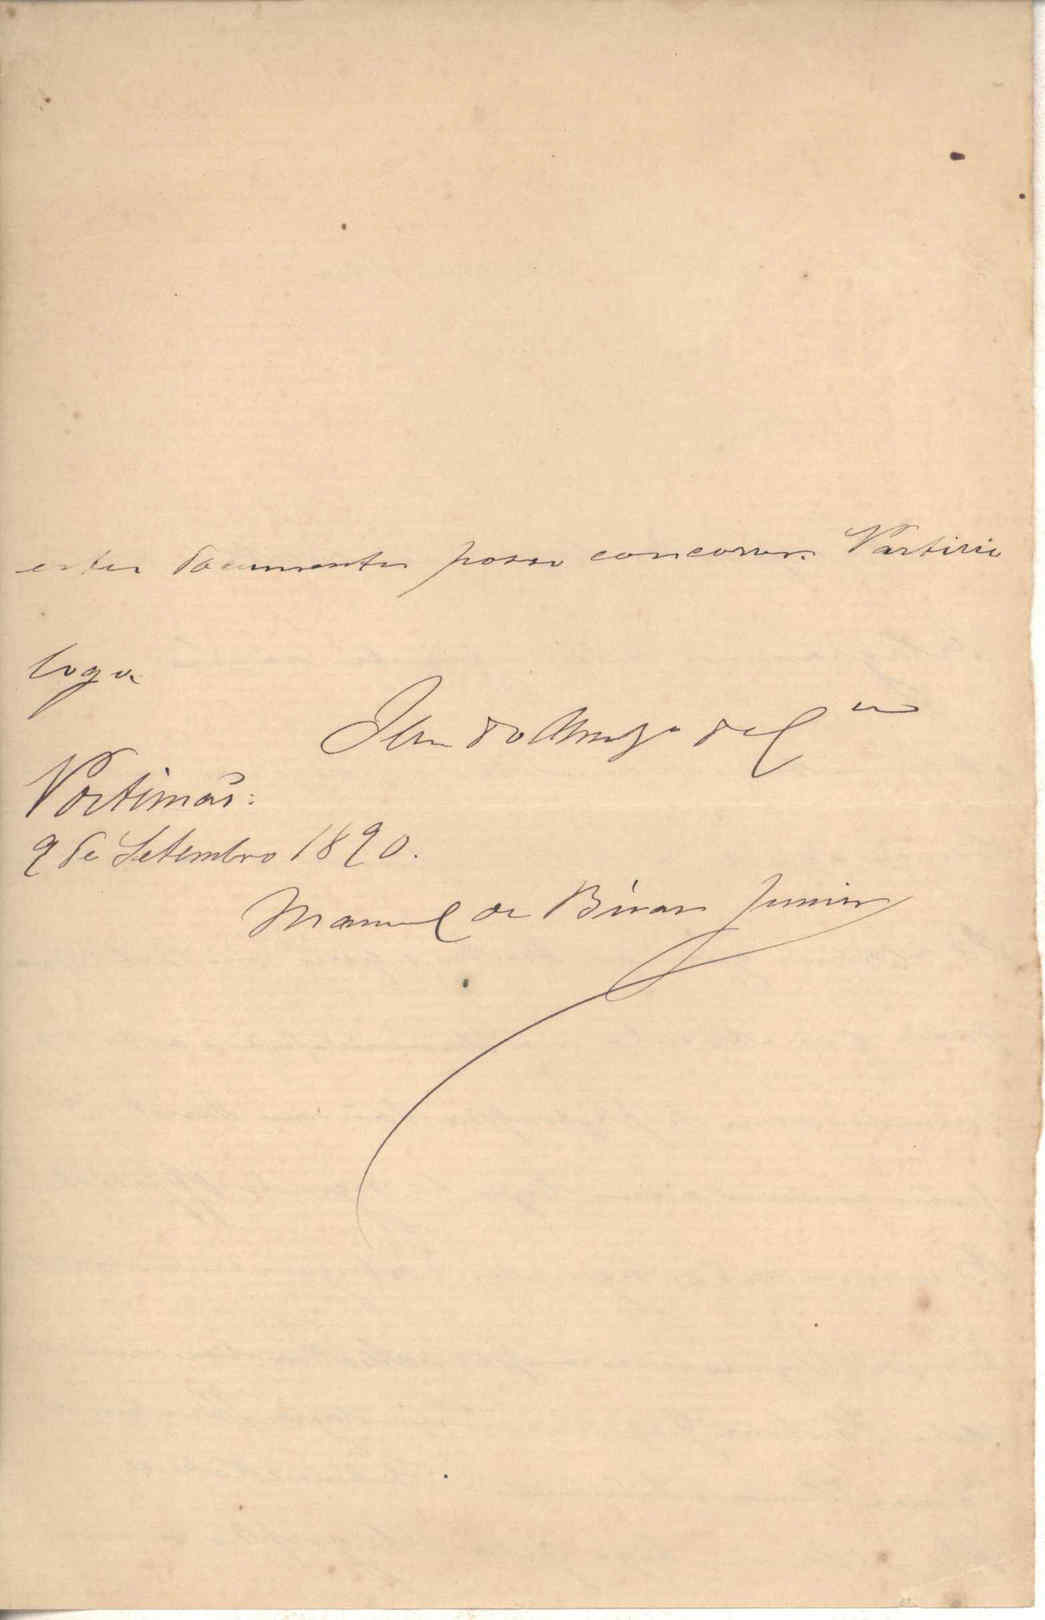 estes documentos posso concorrer. Partirei
logo.
Seu do Amigo de C
Portimão:
9 de Setembro 1890.
Manuel de Bivar Junior